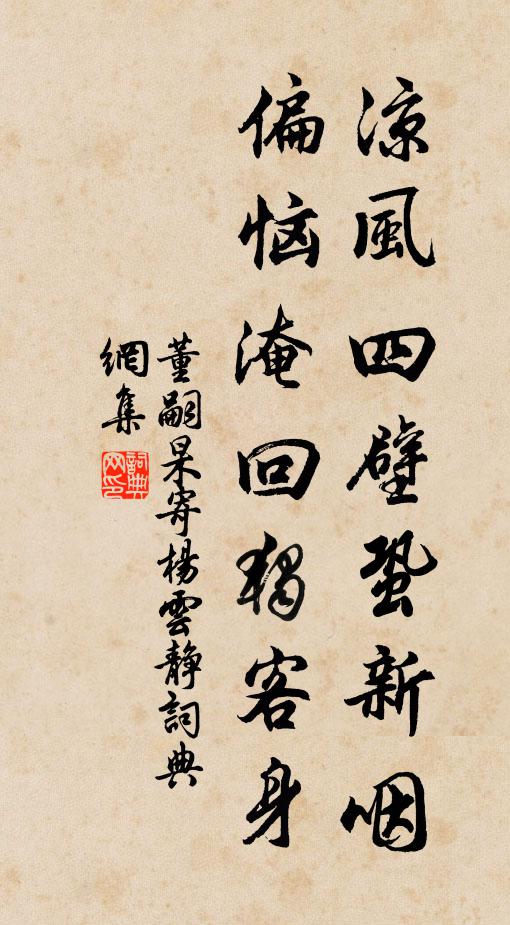 涼風四壁蛩新咽
偏惱淹回獨客身
董嗣杲寄楊雲靜詞典
網集
詞典
网印